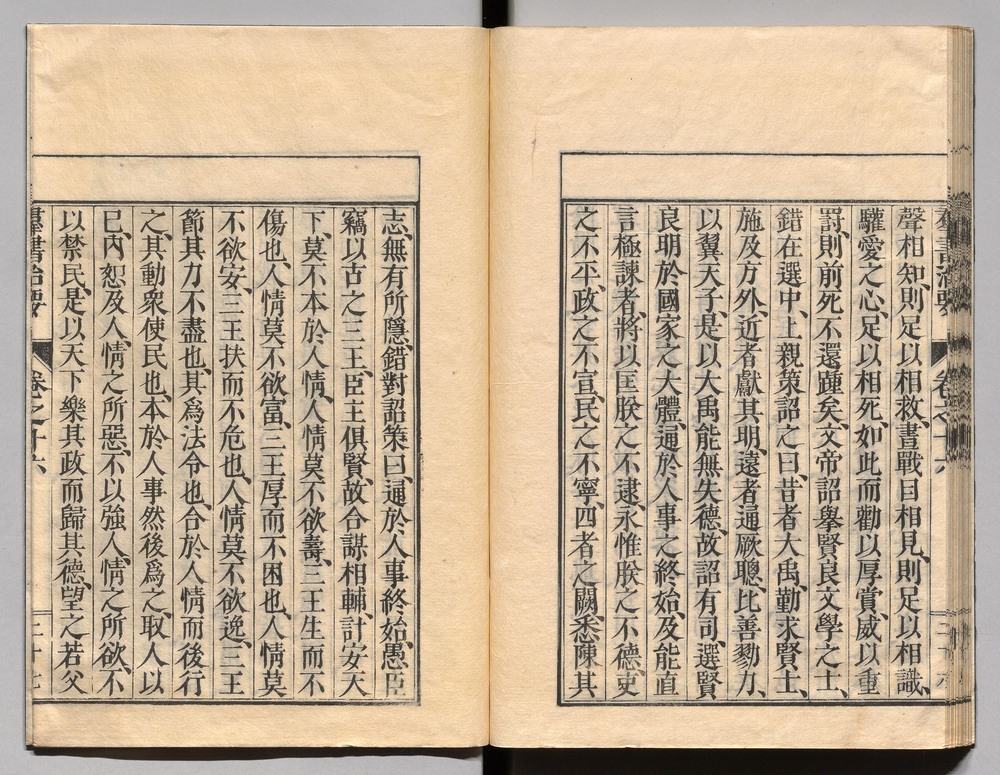 羣書治要 卷之十六
聲相知、則足以相救、晝戰目相見、則足以相識、
驩愛之心、足以相死、如此而勸以厚賞、威以重
罰、則前死不還踵矣、文帝詔舉賢良文學之士、
錯在選中、上親策詔之曰、昔者大禹、勤求賢士、
施及方外、近者獻其明、遠者通厥聰、比善勠力、
以翼天子、是以大禹能無失德、故詔有司、選賢
良明於國家之大體、通於人事之終始、及能直
言極諫者、將以匡朕之不逮、永惟朕之不德、吏
之不平、政之不宣、民之不寧、四者之闕、悉陳其
志、無有所隱、錯對詔策曰、通於人事終始、愚臣
竊以古之三王、臣主俱賢、故合謀相輔、計安天
下、莫不本於人情、人情莫不欲壽、三王生而不
傷也、人情莫不欲富、三王厚而不困也、人情莫
不欲安、三王扶而不危也、人情莫不欲逸、三王
節其力不盡也、其爲法令也、合於人情而後行
之、其動衆使民也、本於人事然後爲之、取人以
己、內恕及人、情之所惡、不以強人、情之所欲、不
以禁民、是以天下樂其政而歸其德、望之若父
羣書治要 卷之十六 二十七